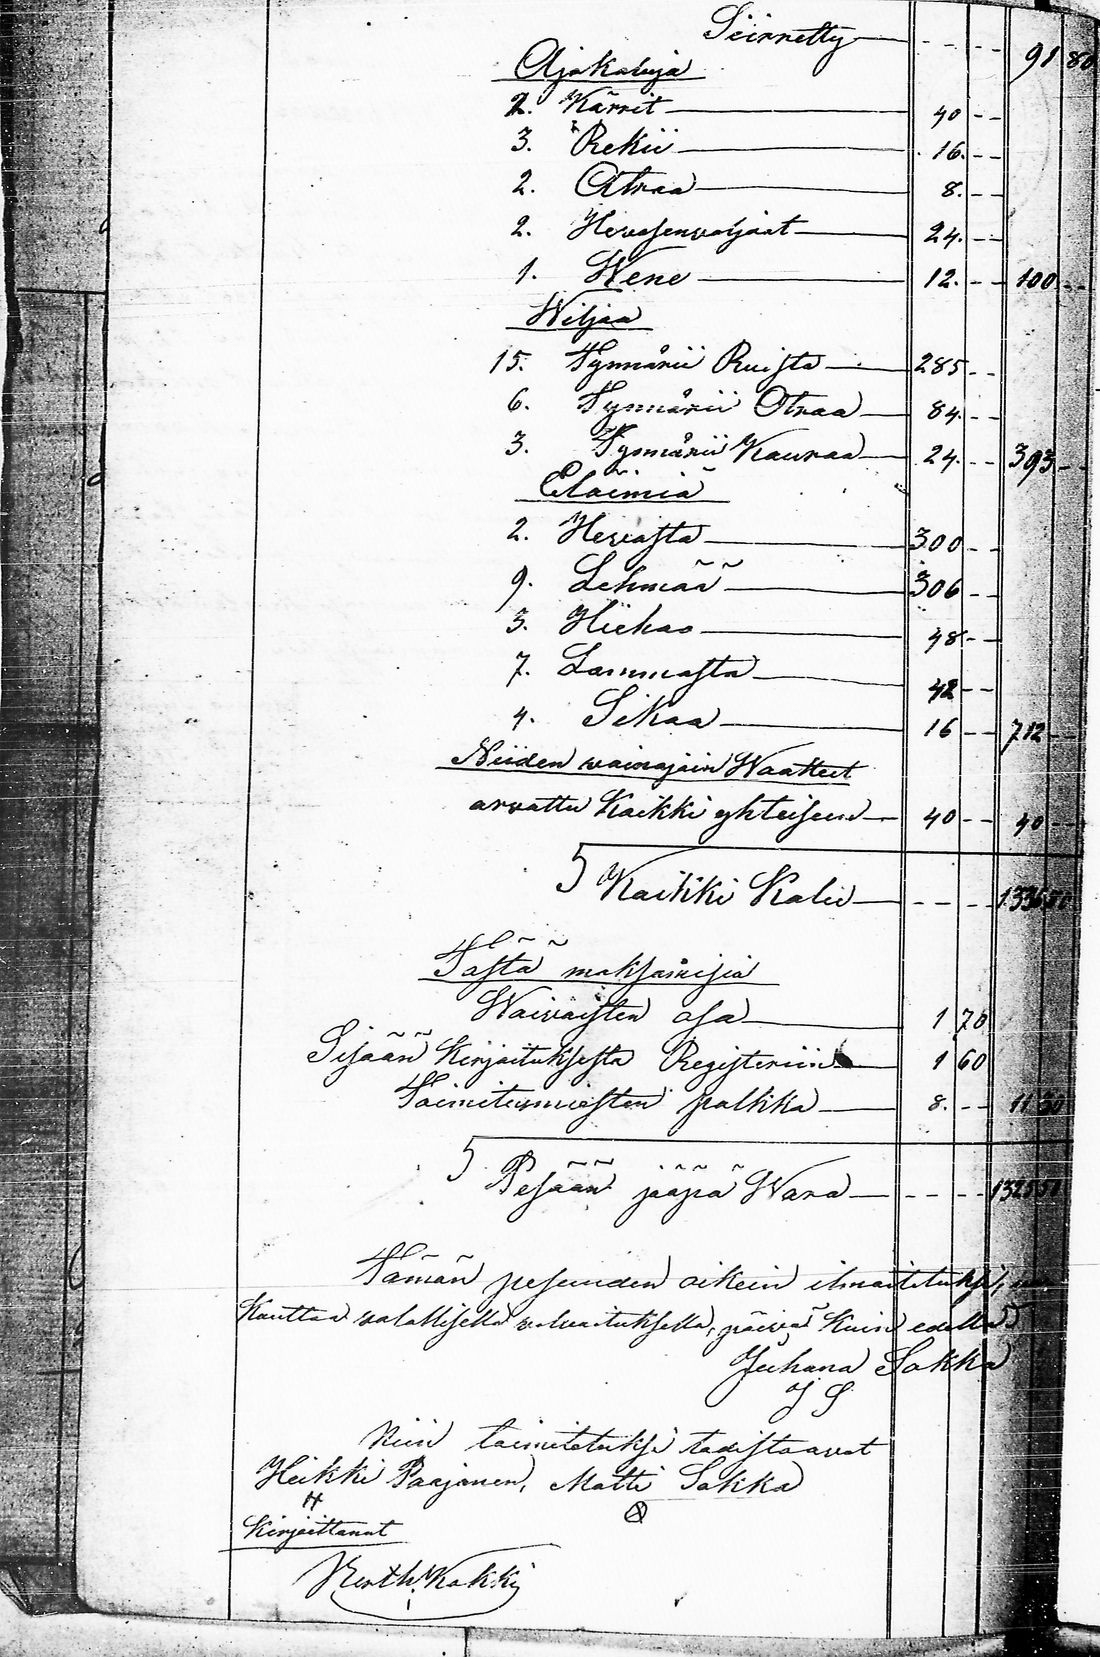 Siirretty - - - - 91 80
Ajokaluja
2. Kärrit 40 - -
3. Rekii 16. - -
2. Atraa 8. - -
2. Hevosenvaljaat 24. - -
1. Wene 12. - - 100 - -
Wiljaa
15. Tynnårii Ruista 285 - -
6. Tynnårii Otraa 84. - -
3. Tynnårii Kauraa 24. - - 393 - -
Elaimiä
2. Hevosta 300 - -
9. Lehmää 306 - -
3. Hiehoo 48 - -
7. Lammasta 42 - -
4. Sikaa 16 - - 712 - -
Niiden vainajain Waatteet
arvattu Kaikki yhteisesti 40 - - 40 - -
S Kaikki Kalu - - - - 1336 80
Tästä maksamisia
Waivaisten osa 1 70
Sisään Kirjoituksesta Registeriin 1 60
Toimitusmiesten palkka 8. - - 11 30
S Pesään jääpä Wara - - - - 1325 50
Tämän pesuuden oikein ilmoitetuksi,
Kauttaa valallisella velvoituksella, päivä Kuin edellä
Juhana Sokka
J S
Niin toimitetuksi todistaavat
Heikki Paajanen, Matti Sokka
Kirjoittanut
Kokki